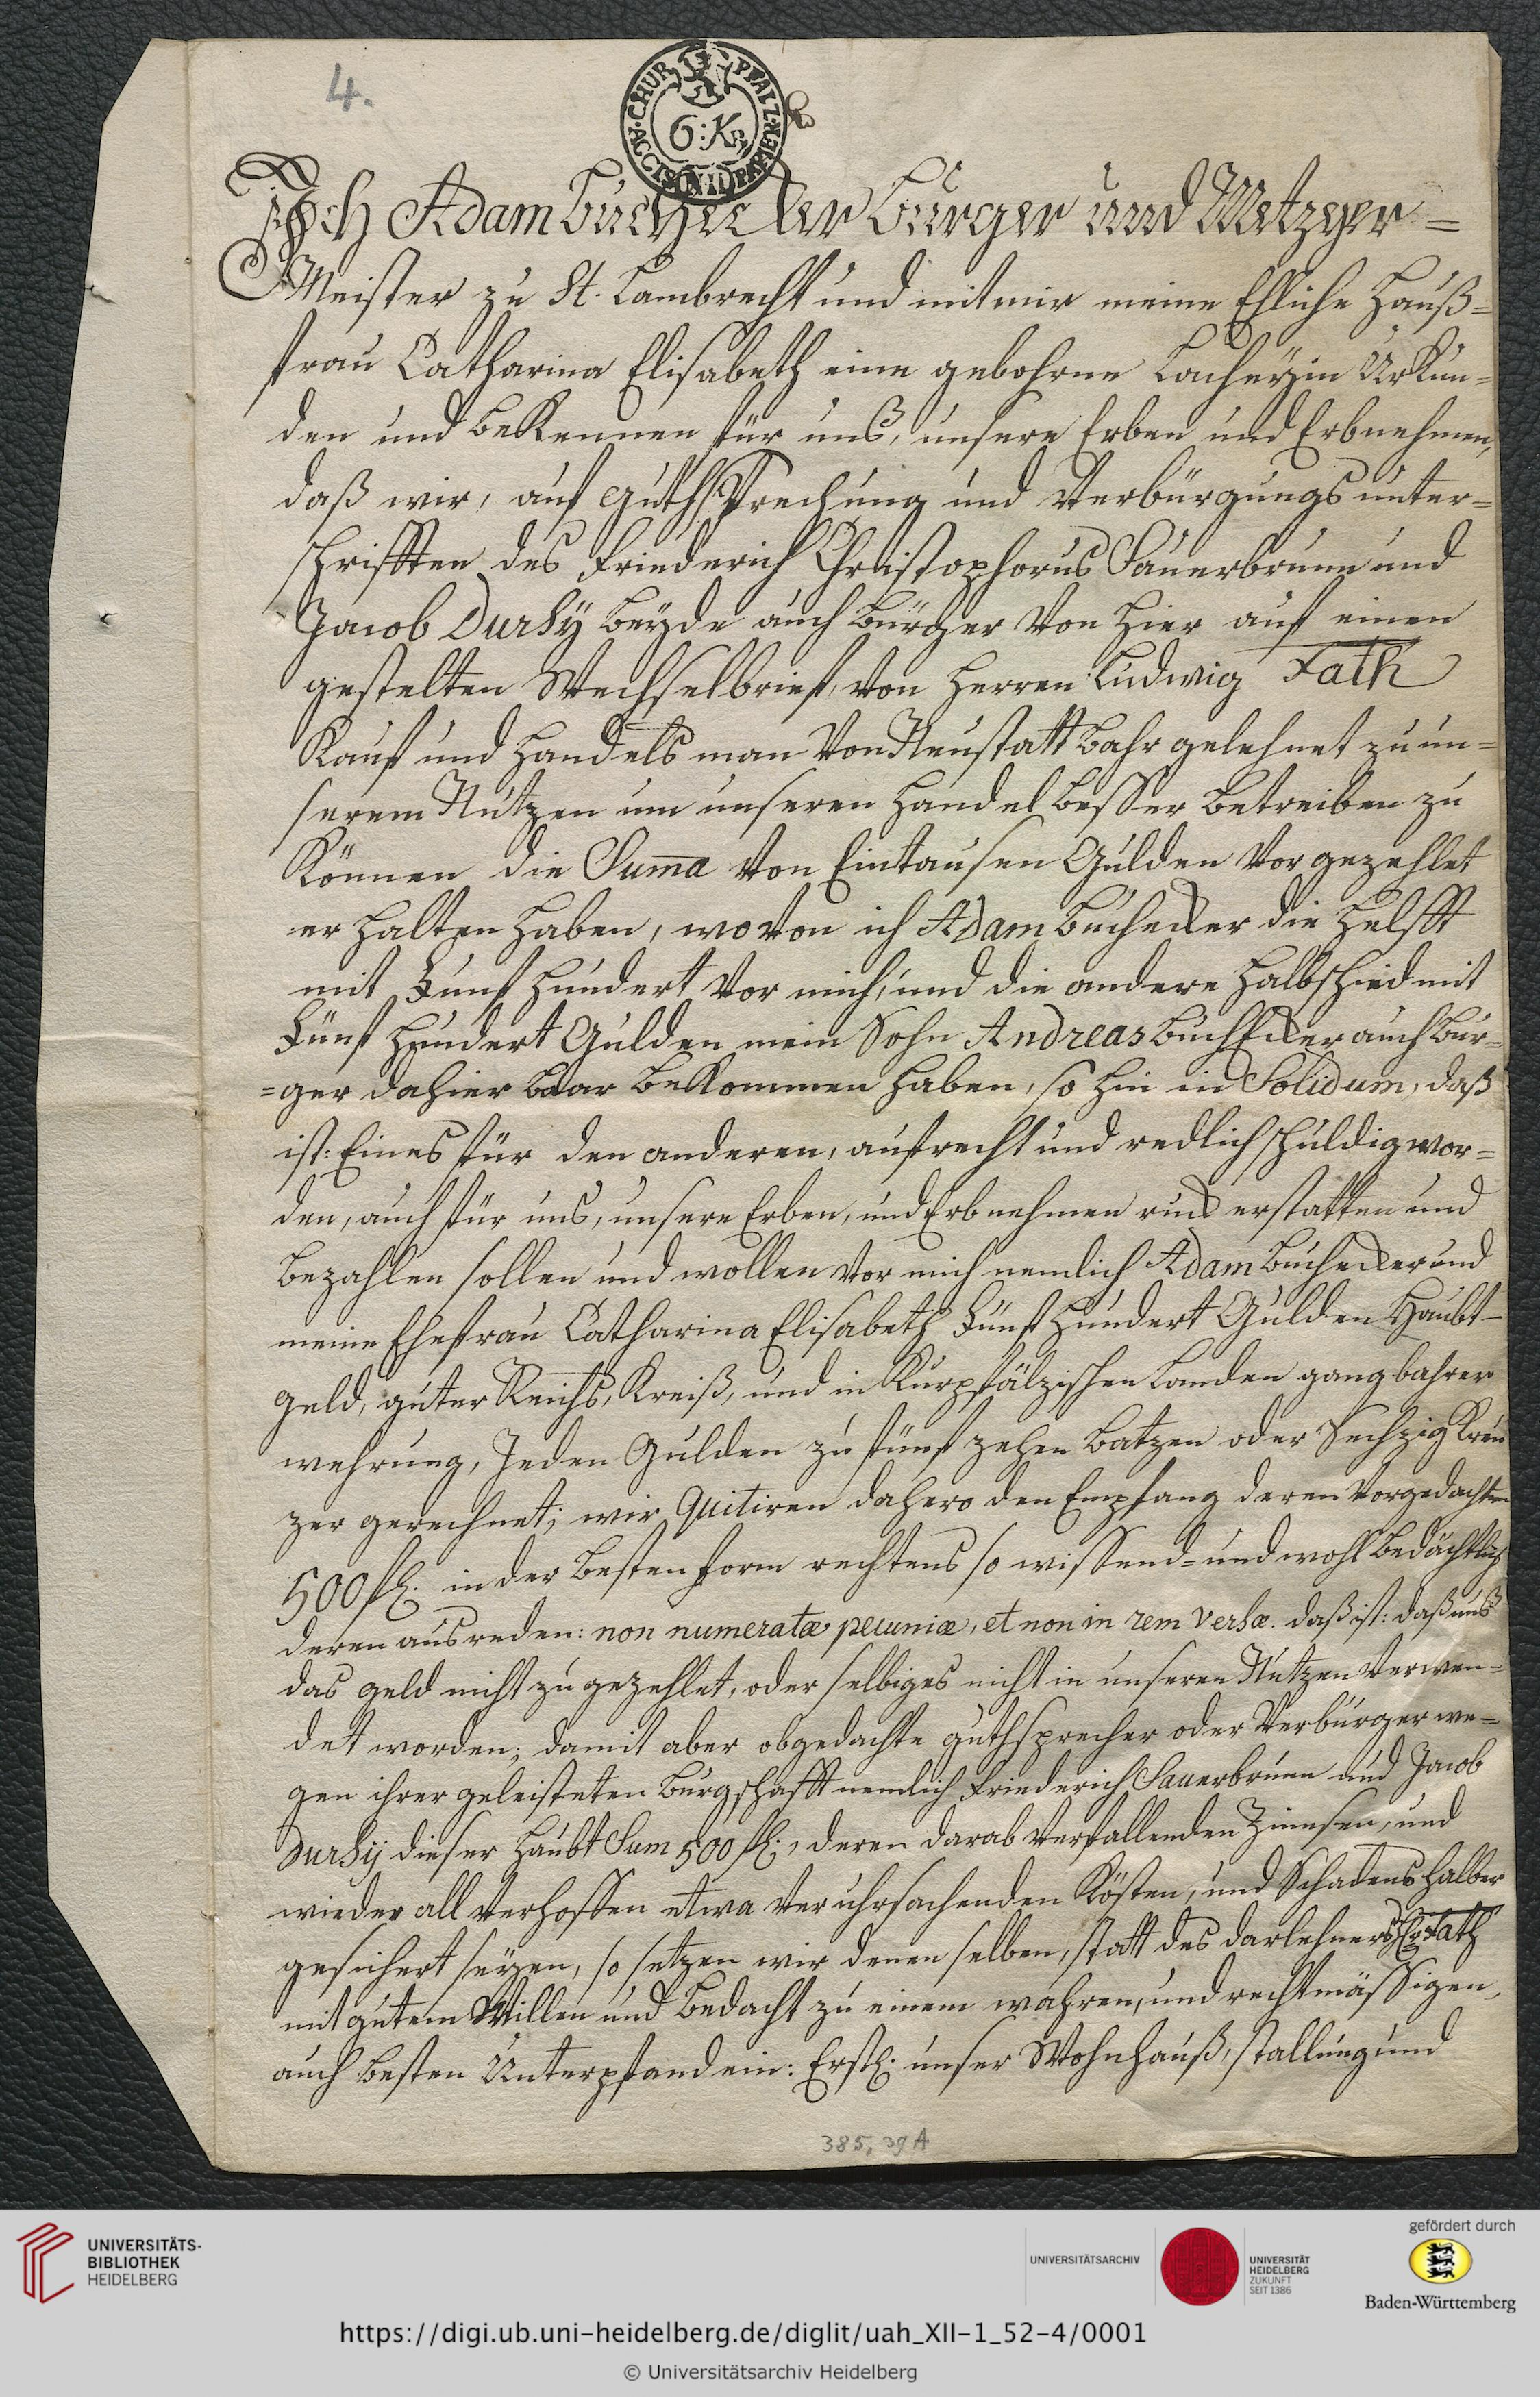 4.
CHUR PFALZ
ACCIS N:II PAPIER
6:Kr
Ich Adam Buchecker Burger und Metzger=
Meister zu St. Lambrecht und mit mir meine Ehliche Hauß=
frau Catharina Elisabeth eine gebohrne Locheyin Urkun=
den und bekennen für unß, unsere Erben und Erbnehmen,
daß wir, auf Guthsprechung und Verbürgungs unter=
schrifften des Friederich Christophorus Sauerbrunn und
Jacob Dursy beyde auch Bürger von hier auf einen
gestelten Wechselbrief, von Herren Ludwig Fath
Kauf und Handels man von Neustatt bahr gelehnet zu un=
serem Nutzen um unseren Handel besser betreiben zu
können die Suma von Eintausen Gulden vorgezehlet
erhalten haben, wovon ich Adam Buchecker die Helfft
mit Funf hundert vor mich, und die andere Halbschied mit
Fünf hundert Gulden mein Sohn Andreas Buchecker auch Bur=
=ger dahier baar bekommen haben, so hin in Solidum, daß
ist: Eines für den anderen, aufrecht und redlich schuldig wor=
den, auch für uns, unsere Erben, und Erbnehmen ruck erstatten und
bezahlen sollen und wollen vor mich nemlich Adam Buchecker und
meine Ehefrau Catharina Elisabeth Fünf hundert Gulden Haubt-
geld, guter Reichs, Kreiß, und in Kurpfälzischen Landen gangbahrer
wehrung, Jeden Gulden zu fünf zehen Batzen oder Sechzig Kreu
zer gerechnet; wir Quitiren dahero den Empfang deren vorgedachten
500 fl. in der besten form rechtens so wissend= und wohl bedächtlich
deren ausreden: non numeratæ pecuniæ, et non in rem versæ. daß ist: daß uns
das geld nicht zugezehlet, oder selbiges nicht in unseren Nutzen verwen=
det worden; damit aber obgedachte guthsprecher oder Verbürger we=
gen ihrer geleisteten Burgschafft nemlich Friederich Sauerbrunn und Jacob
Dursy dieser Haubt Sum 500 fl., deren darab verfallenden Zinnsen, und
wieder all verhoffen etwa veruhrsachenden Kösten, und Schadens halber
gesichert seyen, so setzen wir denen selben, statt des darlehners Hr Fath
mit gutem Willen und Bedacht zu einem wahren, und rechtmässigen,
auch besten Unterpfand ein: Erstl. unser Wohnhauß, stallung und
385, 39 A
UNIVERSITÄTS-
BIBLIOTHEK
HEIDELBERG
UNIVERSITÄTSARCHIV
UNIVERSITÄT
HEIDELBERG
ZUKUNFT
SEIT 1386
gefördert durch
Baden-Württemberg
https://digi.ub.uni-heidelberg.de/diglit/uah_XII-1_52-4/0001
© Universitätsarchiv Heidelberg